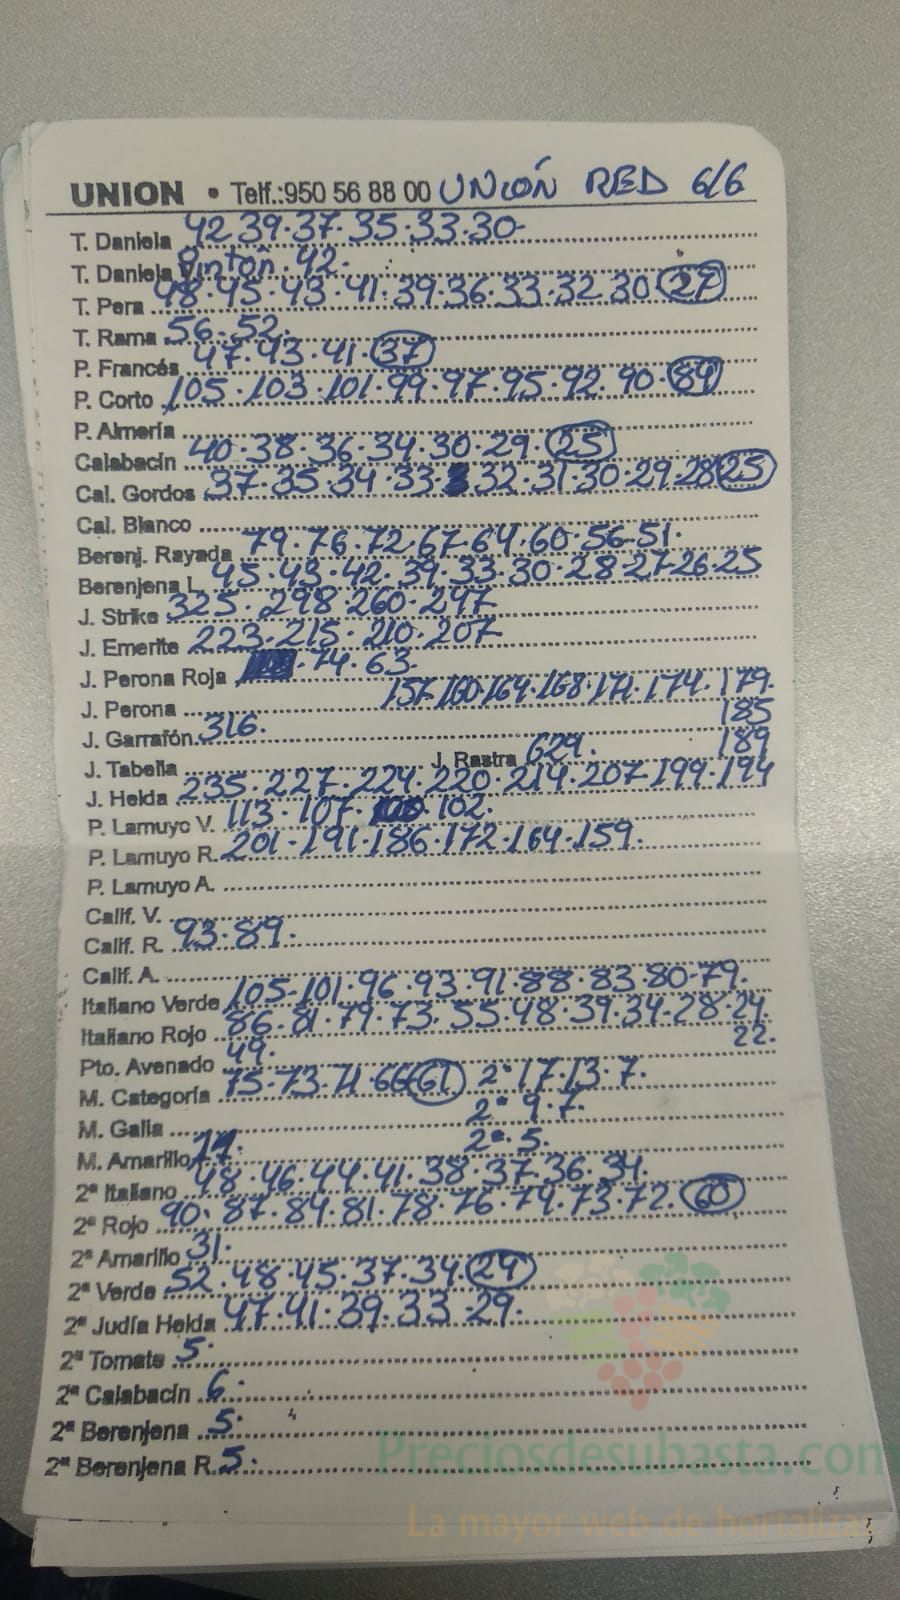 UNION • Telf.:950 56 88 00 UNIÓN RED 6/6
T. Daniela 42 39·37·35·33·30·
T. Daniela V. Pintón·42·
T. Pera 48·45·43·41·39·36·33·32·30 27
T. Rama 56·52·
P. Francés 47·43·41·37
P. Corto 105·103·101·99·97·95·92·90·84
P. Almería
Calabacín 40·38·36·34·30·29·25
Cal. Gordos 37·35·34·33·32·31·30·29·28 25
Cal. Blanco
Berenj. Rayada 79·76·72·67·64·60·56·51·
Berenjena L. 45·43·42·39·33·30·28·27·26·25
J. Strike 325·298·260·247
J. Emerite 223·215·210·207
J. Perona Roja 74·63·
J. Perona 157·160·164·168·171·174·179·
185
J. Garrafón 316·
189
J. Tabella J. Rastra 629·
J. Helda 235·227·224·220·214·207·199·194
P. Lamuyo V. 113·107·102·
P. Lamuyo R. 201·191·186·172·164·159·
P. Lamuyo A.
Calif. V.
Calif. R. 93·89·
Calif. A.
Italiano Verde 105·101·96·93·91·88·83·80·79·
Italiano Rojo 86·81·79·73·55·48·39·34·28·24·
22·
Pto. Avenado 49·
M. Categoría 75·73·71·66 61 2ª 17·13·7·
M. Galia 2ª 9·7·
M. Amarillo 2ª·5·
2ª Italiano 48·46·44·41·38·37·36·34·
2ª Rojo 90·87·84·81·78·76·74·73·72· 60
2ª Amarillo 31·
2ª Verde 52·48·45·37·34·29
2ª Judía Helda 47·41·39·33·29·
2ª Tomate 5·
2ª Calabacín 6·
2ª Berenjena 5·
2ª Berenjena R. 5·
Preciosdesubasta.com
La mayor web de hortalizas